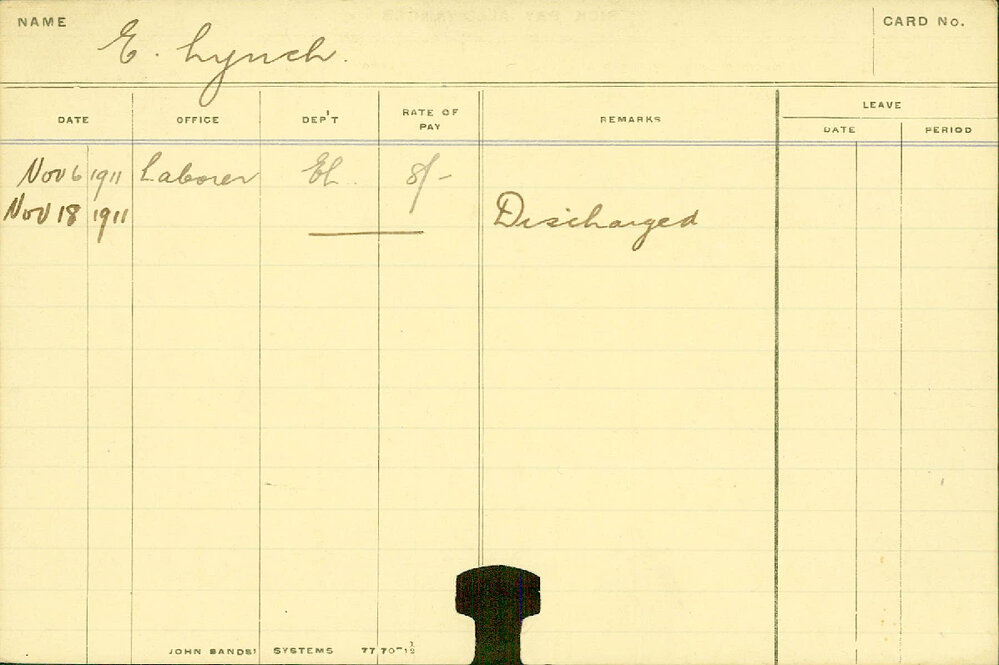 NAME E. Lynch. CARD No.
DATE OFFICE DEP'T RATE OF PAY REMARKS LEAVE
DATE PERIOD
Nov 6 1911 Laborer EL. 8/-
Nov 18 1911 Discharged
JOHN SANDS' SYSTEMS 77 70